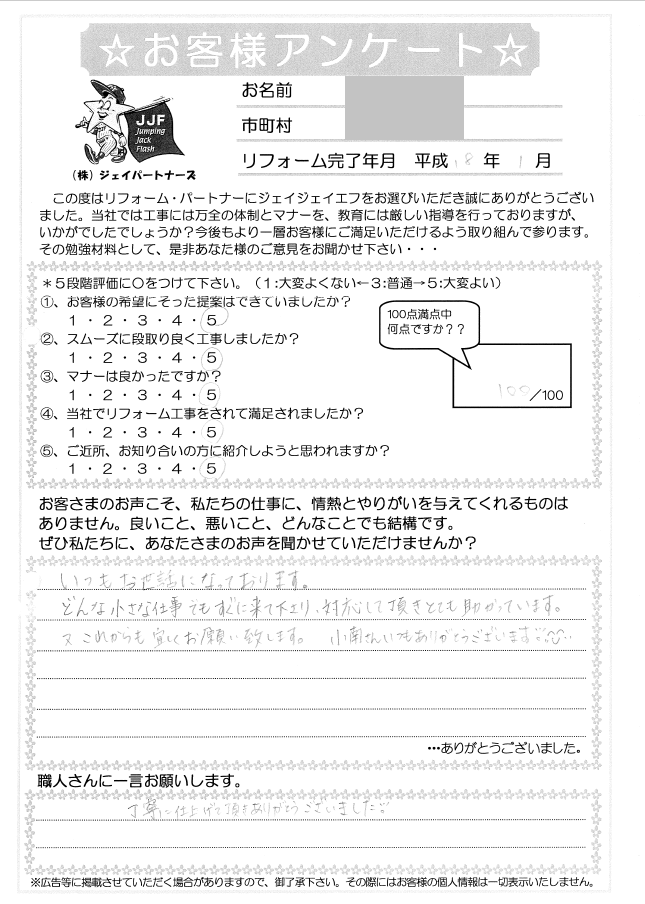 ☆お客様アンケート☆
JJF
Jumping
Jack
Flash
(株)ジェイパートナーズ
お名前
市町村
リフォーム完了年月 平成 18 年 1 月
この度はリフォーム・パートナーにジェイジェイエフをお選びいただき誠にありがとうござい
ました。当社では工事には万全の体制とマナーを、教育には厳しい指導を行っておりますが、
いかがでしたでしょうか？今後もより一層お客様にご満足いただけるよう取り組んで参ります。
その勉強材料として、是非あなた様のご意見をお聞かせ下さい・・・
＊５段階評価に○をつけて下さい。（１:大変よくない←３:普通→５:大変よい）
①、お客様の希望にそった提案はできていましたか？
１・２・３・４・５
②、スムーズに段取り良く工事しましたか？
１・２・３・４・５
③、マナーは良かったですか？
１・２・３・４・５
④、当社でリフォーム工事をされて満足されましたか？
１・２・３・４・５
⑤、ご近所、お知り合いの方に紹介しようと思われますか？
１・２・３・４・５
100点満点中
何点ですか？？
100/100
お客さまのお声こそ、私たちの仕事に、情熱とやりがいを与えてくれるものは
ありません。良いこと、悪いこと、どんなことでも結構です。
ぜひ私たちに、あなたさまのお声を聞かせていただけませんか？
いつもお世話になっております。
どんな小さな仕事でもすぐに来て下さり、対応して頂きとても助かっています。
又これからも宜しくお願い致します。 小南さんいつもありがとうございます
…ありがとうございました。
職人さんに一言お願いします。
丁寧に仕上げて頂きありがとうございました
※広告等に掲載させていただく場合がありますので、御了承下さい。その際にはお客様の個人情報は一切表示いたしません。